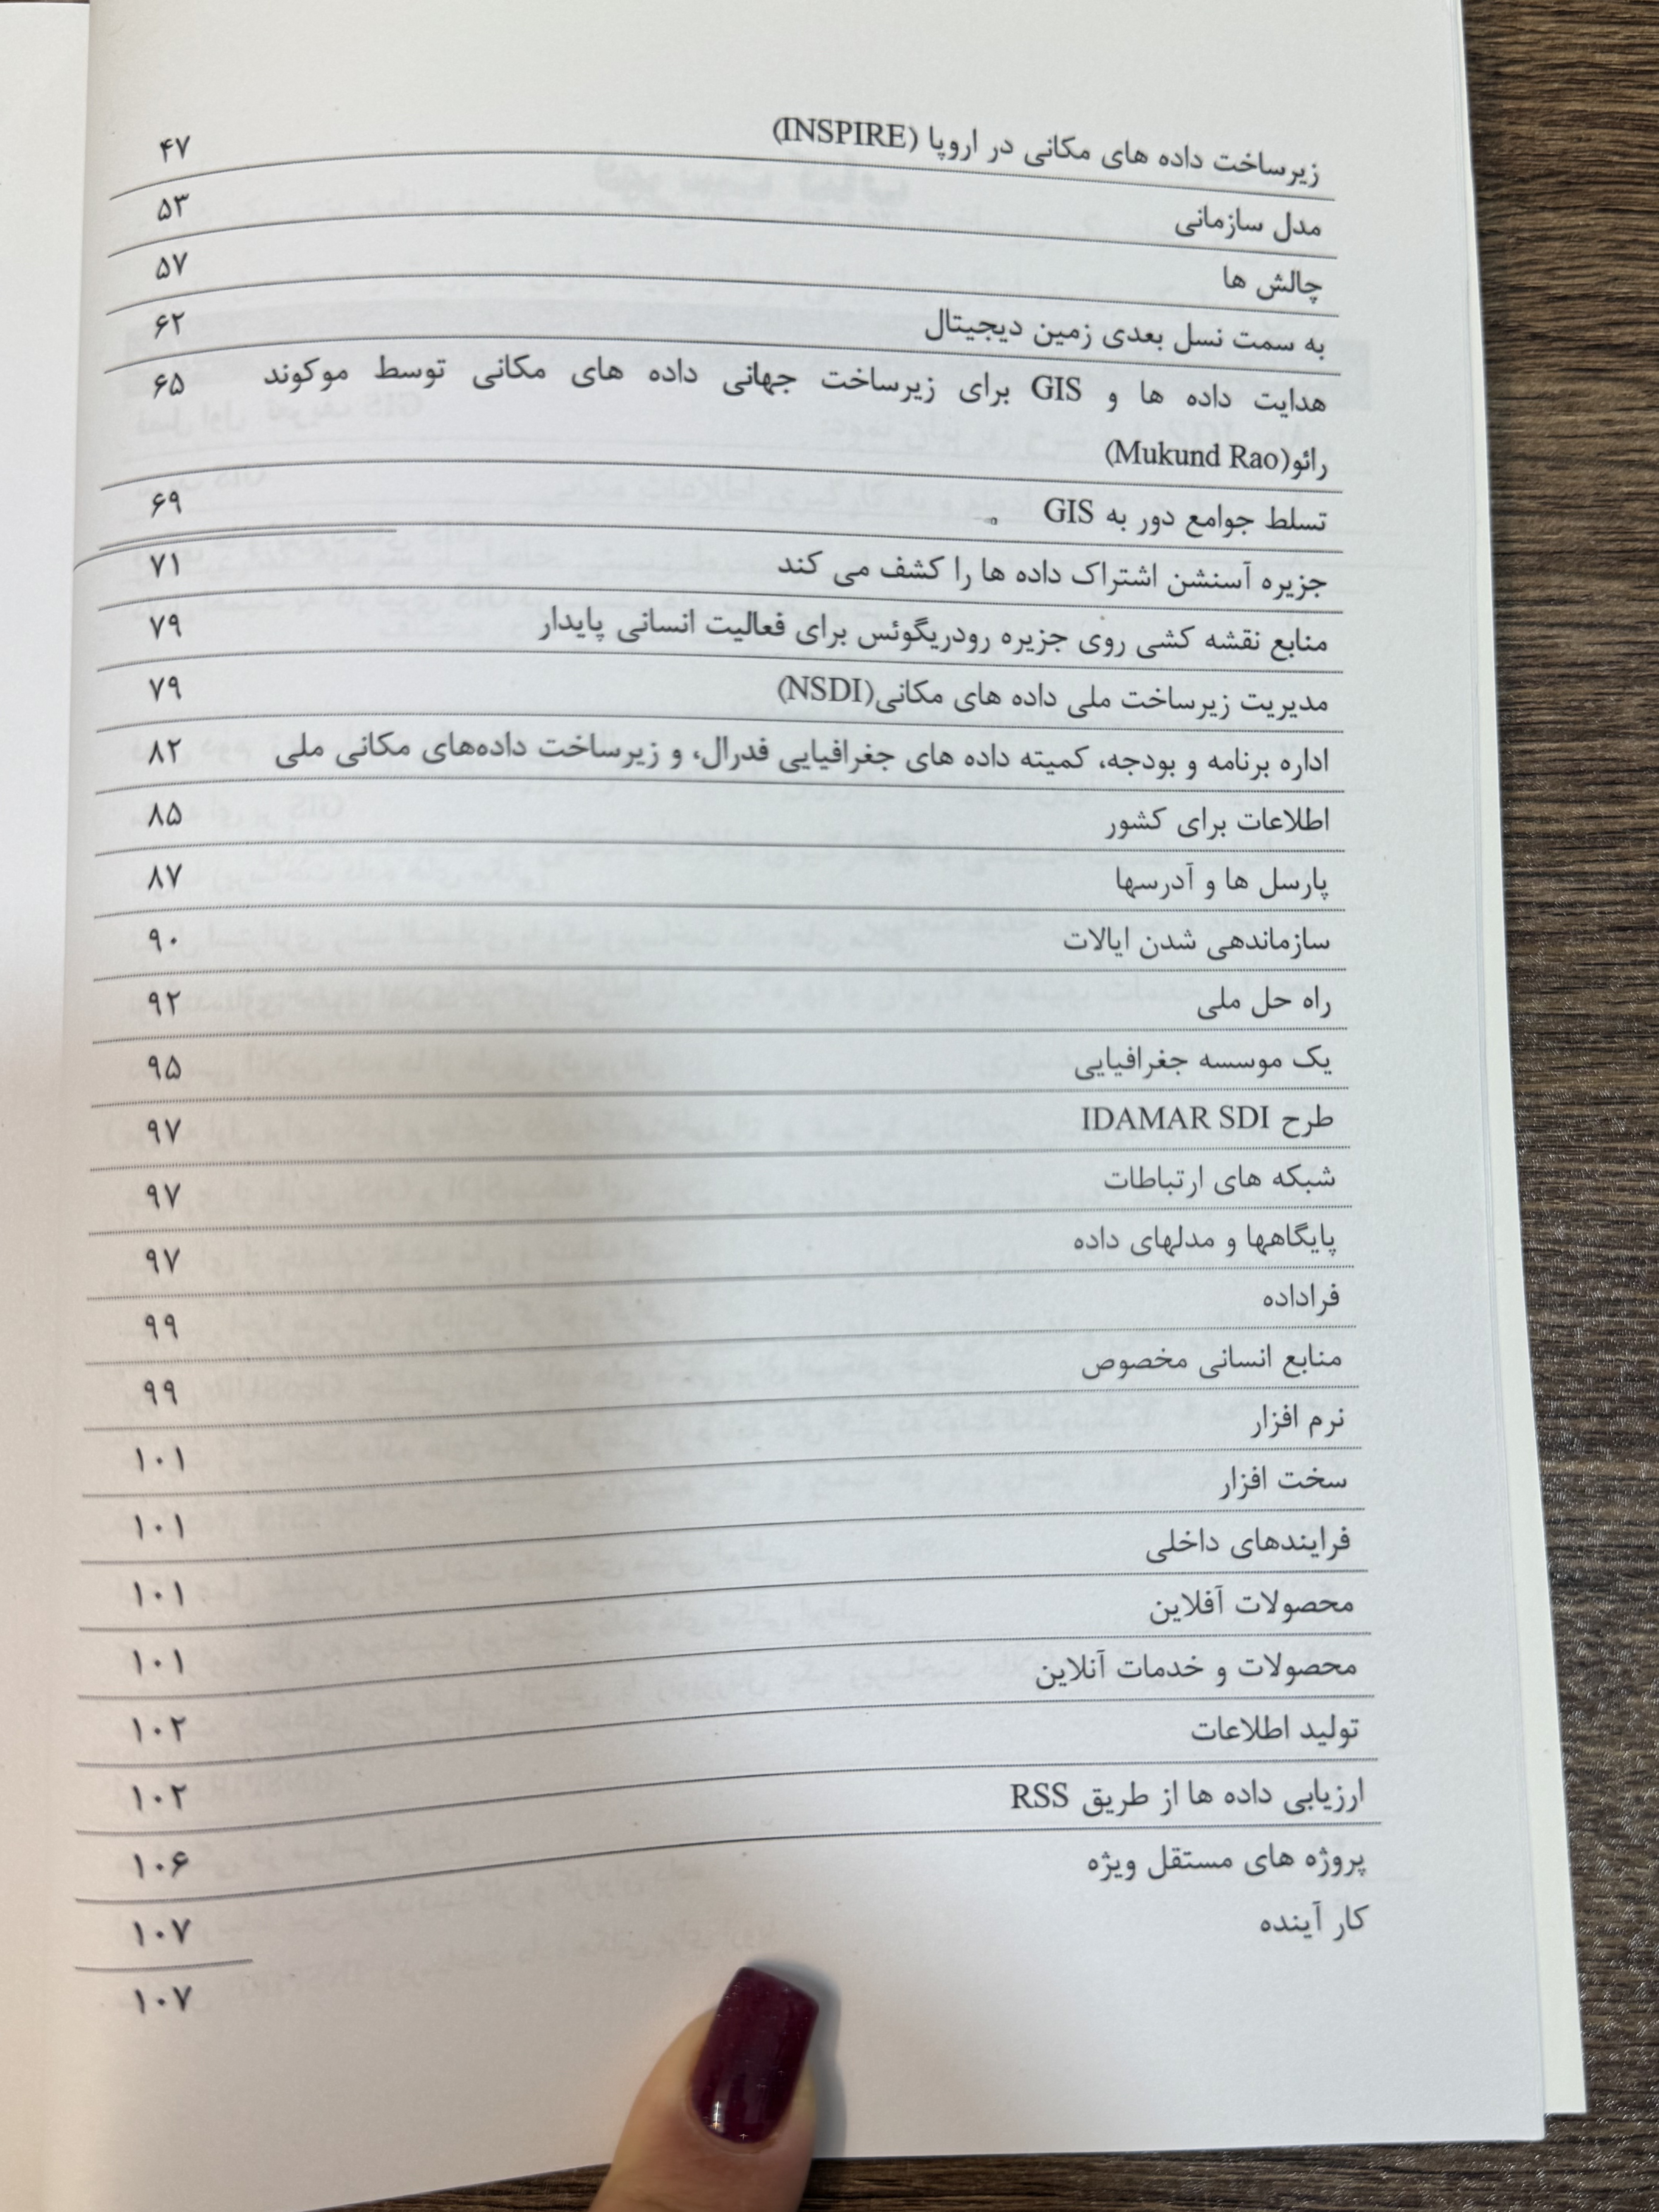 زیرساخت داده های مکانی در اروپا (INSPIRE) ۴۷
مدل سازمانی ۵۳
چالش ها ۵۷
به سمت نسل بعدی زمین دیجیتال ۶۲
هدایت داده ها و GIS برای زیرساخت جهانی داده های مکانی توسط موکوند ۶۵
رائو(Mukund Rao)
تسلط جوامع دور به GIS ۶۹
جزیره آسنشن اشتراک داده ها را کشف می کند ۷۱
منابع نقشه کشی روی جزیره رودریگوئس برای فعالیت انسانی پایدار ۷۹
مدیریت زیرساخت ملی داده های مکانی(NSDI) ۷۹
اداره برنامه و بودجه، کمیته داده های جغرافیایی فدرال، و زیرساخت داده‌های مکانی ملی ۸۲
اطلاعات برای کشور ۸۵
پارسل ها و آدرسها ۸۷
سازماندهی شدن ایالات ۹۰
راه حل ملی ۹۲
یک موسسه جغرافیایی ۹۵
طرح IDAMAR SDI ۹۷
شبکه های ارتباطات ۹۷
پایگاهها و مدلهای داده ۹۷
فراداده ۹۹
منابع انسانی مخصوص ۹۹
نرم افزار ۱۰۱
سخت افزار ۱۰۱
فرایندهای داخلی ۱۰۱
محصولات آفلاین ۱۰۱
محصولات و خدمات آنلاین ۱۰۲
تولید اطلاعات ۱۰۲
ارزیابی داده ها از طریق RSS ۱۰۶
پروژه های مستقل ویژه ۱۰۷
کار آینده ۱۰۷